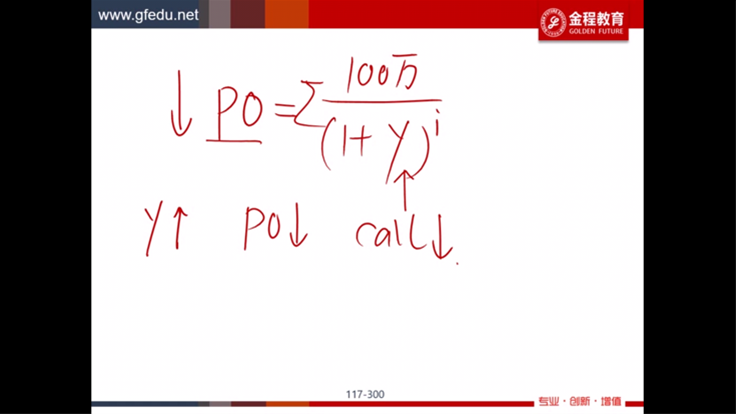 www.gfedu.net
金程教育
GOLDEN FUTURE
↓ P0 = Σ 100万 / (1+y)^i
y↑ P0↓ call↓
117-300
专业·创新·增值